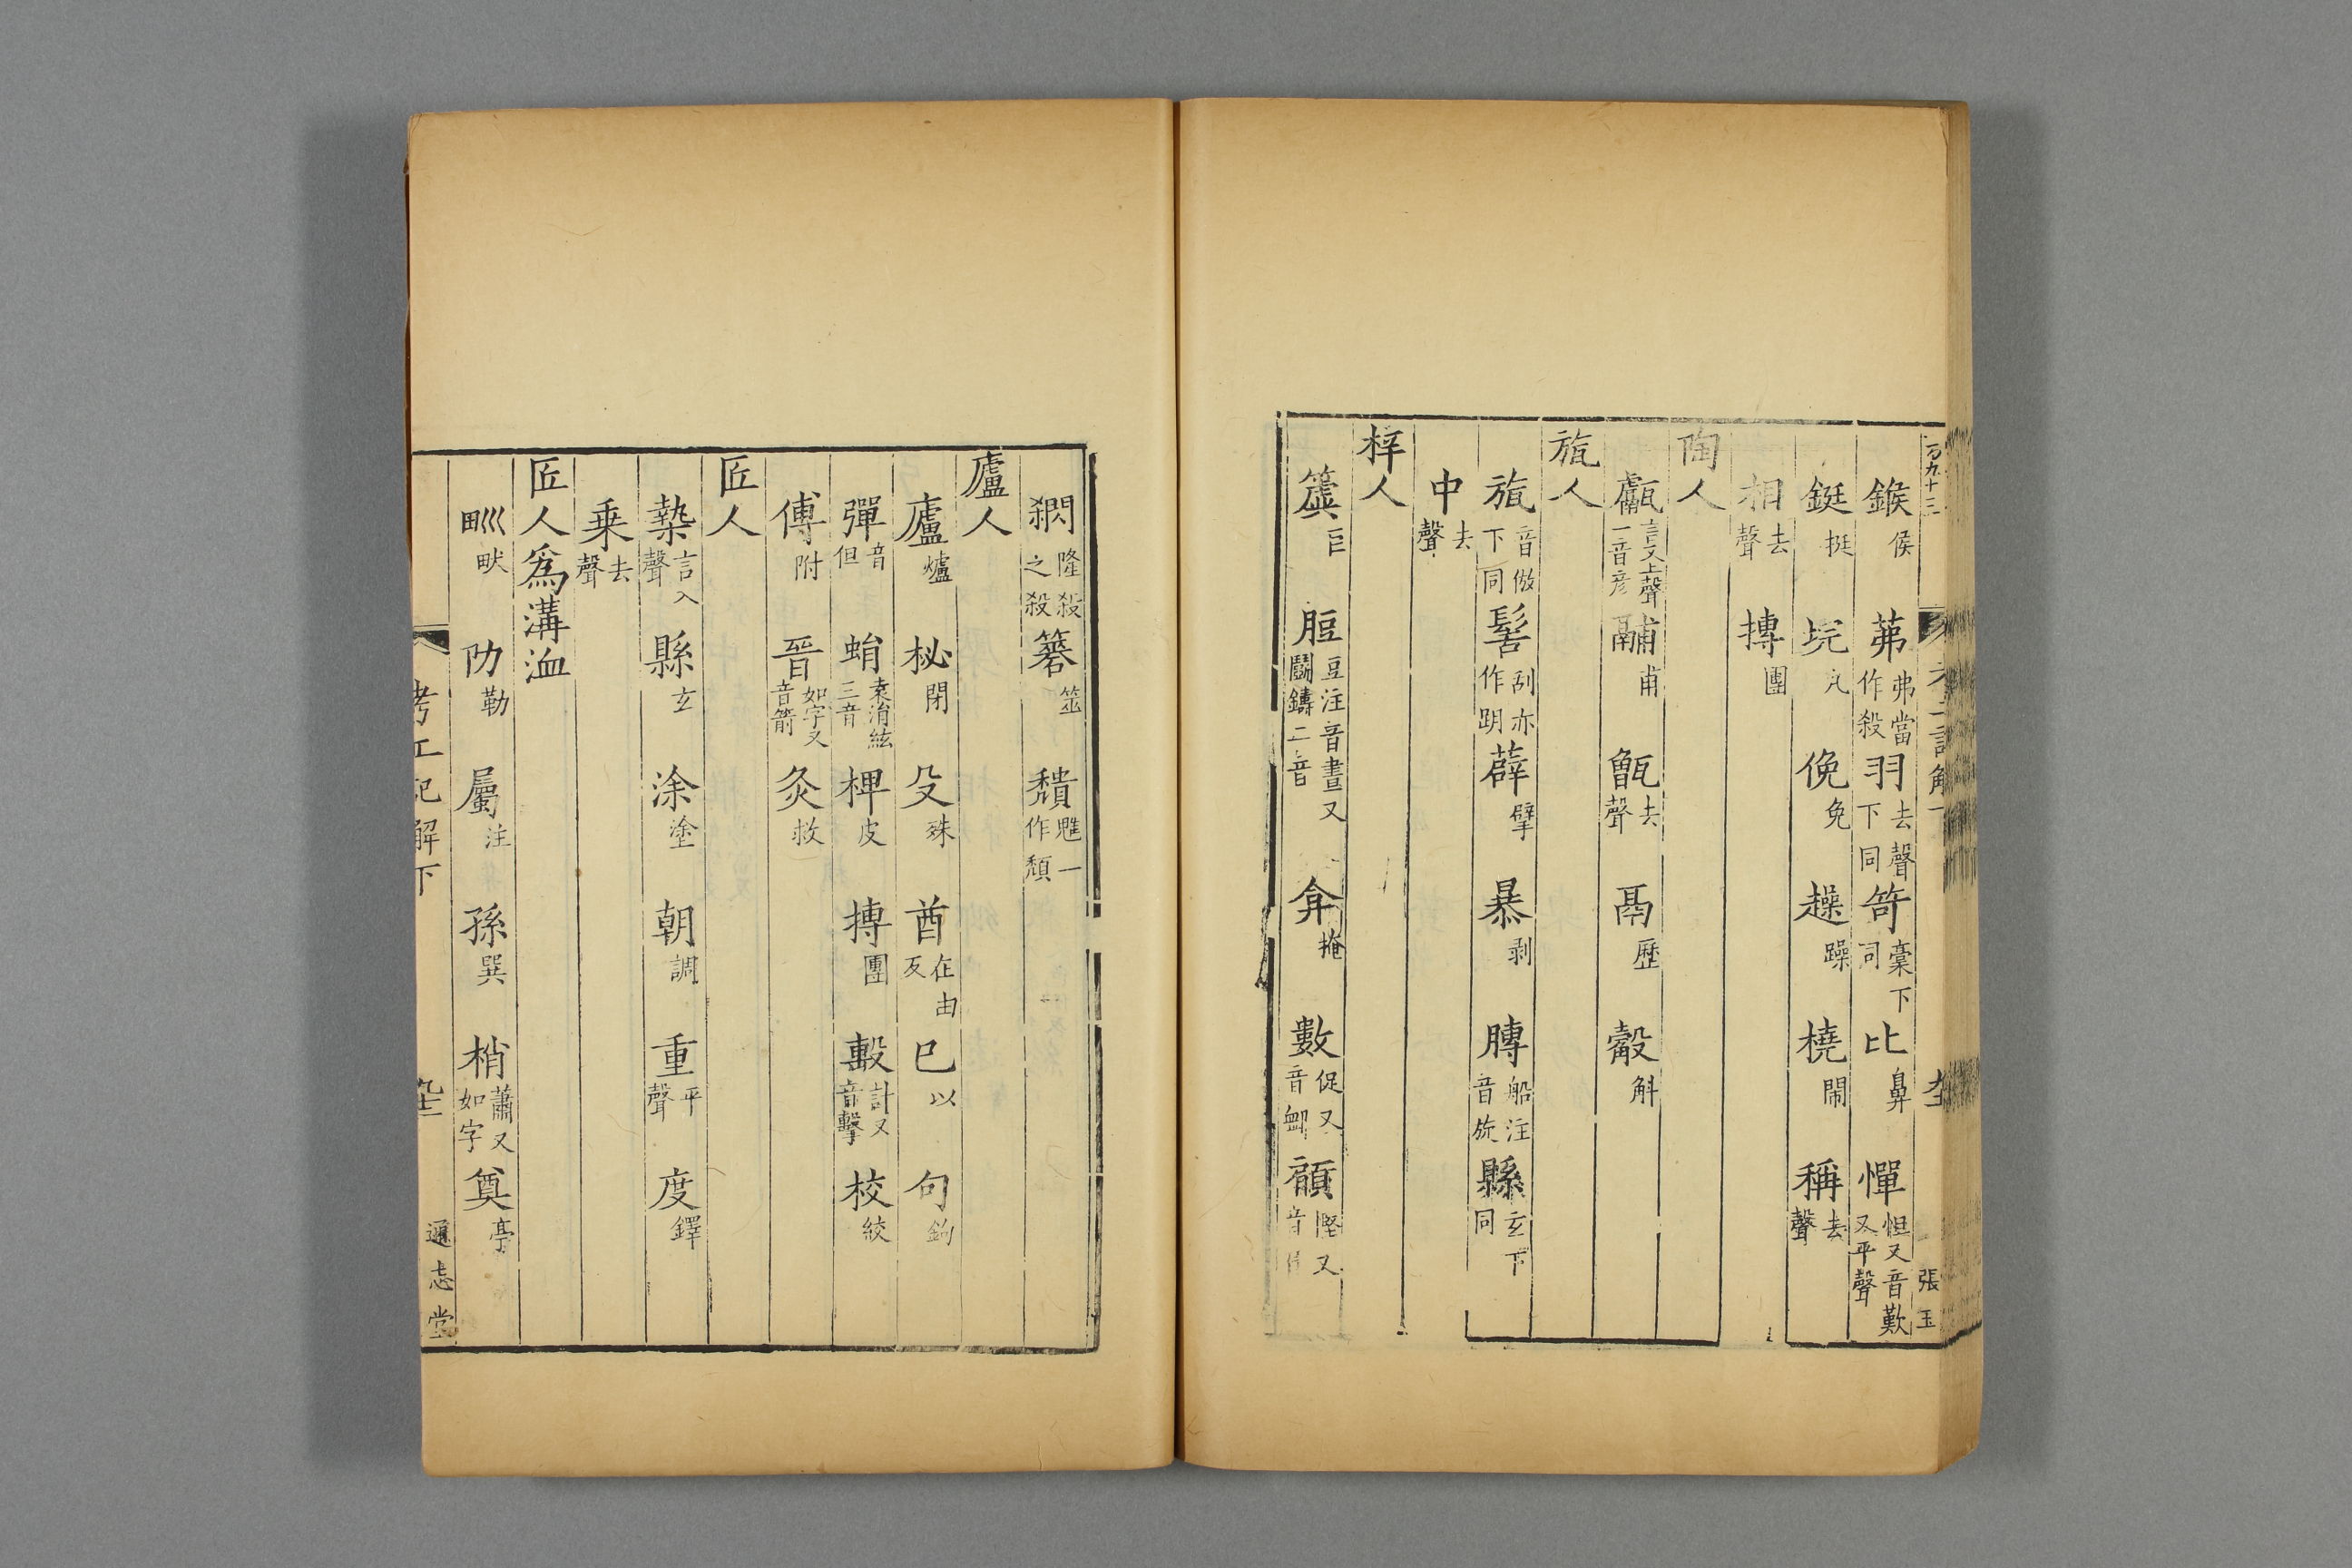 鍭侯 茀弗當作殺 羽去聲下同 笴稾下同 比鼻 憚怛又音歎又平聲
鋌挺 垸丸 俛免 趮躁 橈鬧 稱去聲
相去聲 摶團
陶人
甗言又上聲一音彥 鬴甫 甑去聲 鬲歷 觳斛
瓬人
瓬音倣下同 髺刮亦作刖 薜擘 暴剥 膞船注音旋 縣玄下同
中去聲
梓人
簨 脰豆注音晝又鬭鑄二音 弇掩 數促又音 顅慳又音
張玉
閷隆殺之殺 簭筮 穨魋一作頹
廬人
廬爐 柲閉 殳殊 酋在由反 巳以 句鉤
彈音但 蜎袁消絃三音 椑皮 摶團 毄計又音擊 校絞
傅附 晉如字又音箭 灸救
匠人
槷言入聲 縣玄 涂塗 朝調 重平聲 度鐸
乗去聲
匠人爲溝洫
甽畎 阞勒 屬注 孫巽 梢蕭又如字 奠亭
考工記解下 通志堂